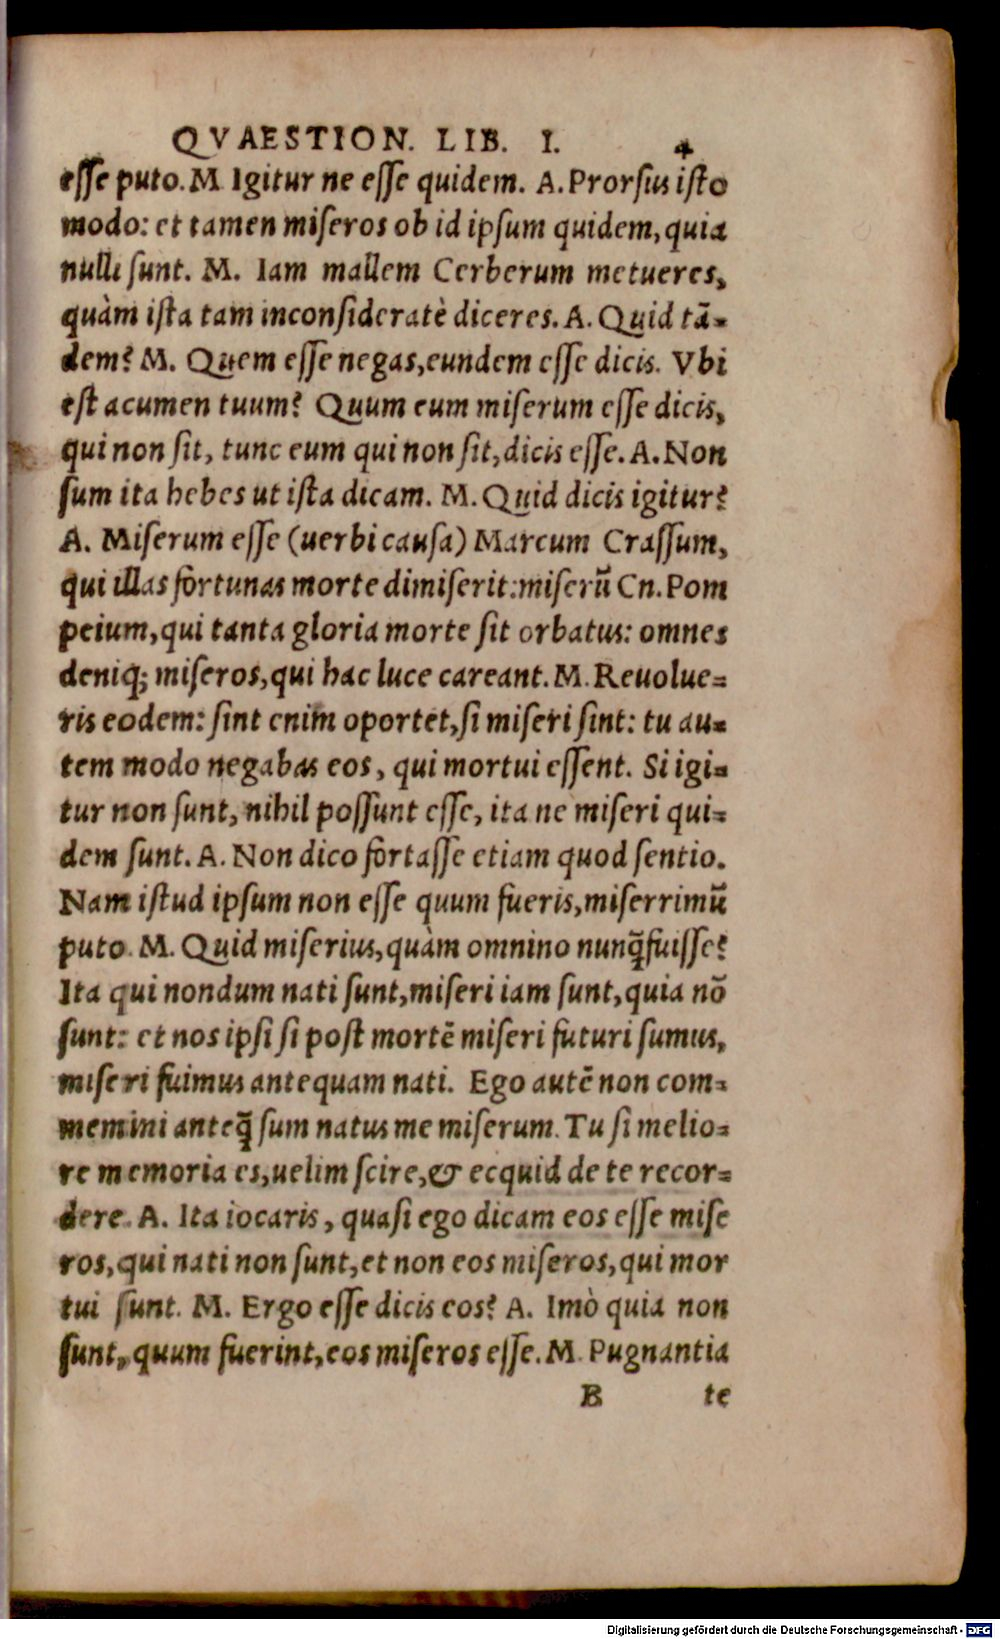 QVAESTION. LIB. I. 4
esse puto. M. Igitur ne esse quidem. A. Prorsus isto
modo: et tamen miseros ob id ipsum quidem, quia
nulli sunt. M. Iam mallem Cerberum metueres,
quàm ista tam inconsideratè diceres. A. Quid tā-
dem? M. Quem esse negas, eundem esse dicis. Vbi
est acumen tuum? Quum eum miserum esse dicis,
qui non sit, tunc eum qui non sit, dicis esse. A. Non
sum ita hebes ut ista dicam. M. Quid dicis igitur?
A. Miserum esse (uerbi causa) Marcum Crassum,
qui illas fortunas morte dimiserit: miserū Cn. Pom
peium, qui tanta gloria morte sit orbatus: omnes
deniq; miseros, qui hac luce careant. M. Reuolue-
ris eodem: sint enim oportet, si miseri sint: tu au-
tem modo negabas eos, qui mortui essent. Si igi-
tur non sunt, nihil possunt esse, ita ne miseri qui-
dem sunt. A. Non dico fortasse etiam quod sentio.
Nam istud ipsum non esse quum fueris, miserrimū
puto. M. Quid miserius, quàm omnino nunq̄ fuisse?
Ita qui nondum nati sunt, miseri iam sunt, quia nō
sunt: et nos ipsi si post mortē miseri futuri sumus,
miseri fuimus antequam nati. Ego autē non com-
memini anteq̄ sum natus me miserum. Tu si melio-
re memoria es, uelim scire, & ecquid de te recor-
dere. A. Ita iocaris, quasi ego dicam eos esse mise
ros, qui nati non sunt, et non eos miseros, qui mor
tui sunt. M. Ergo esse dicis eos? A. Imò quia non
sunt, quum fuerint, eos miseros esse. M. Pugnantia
B te
Digitalisierung gefördert durch die Deutsche Forschungsgemeinschaft - DFG